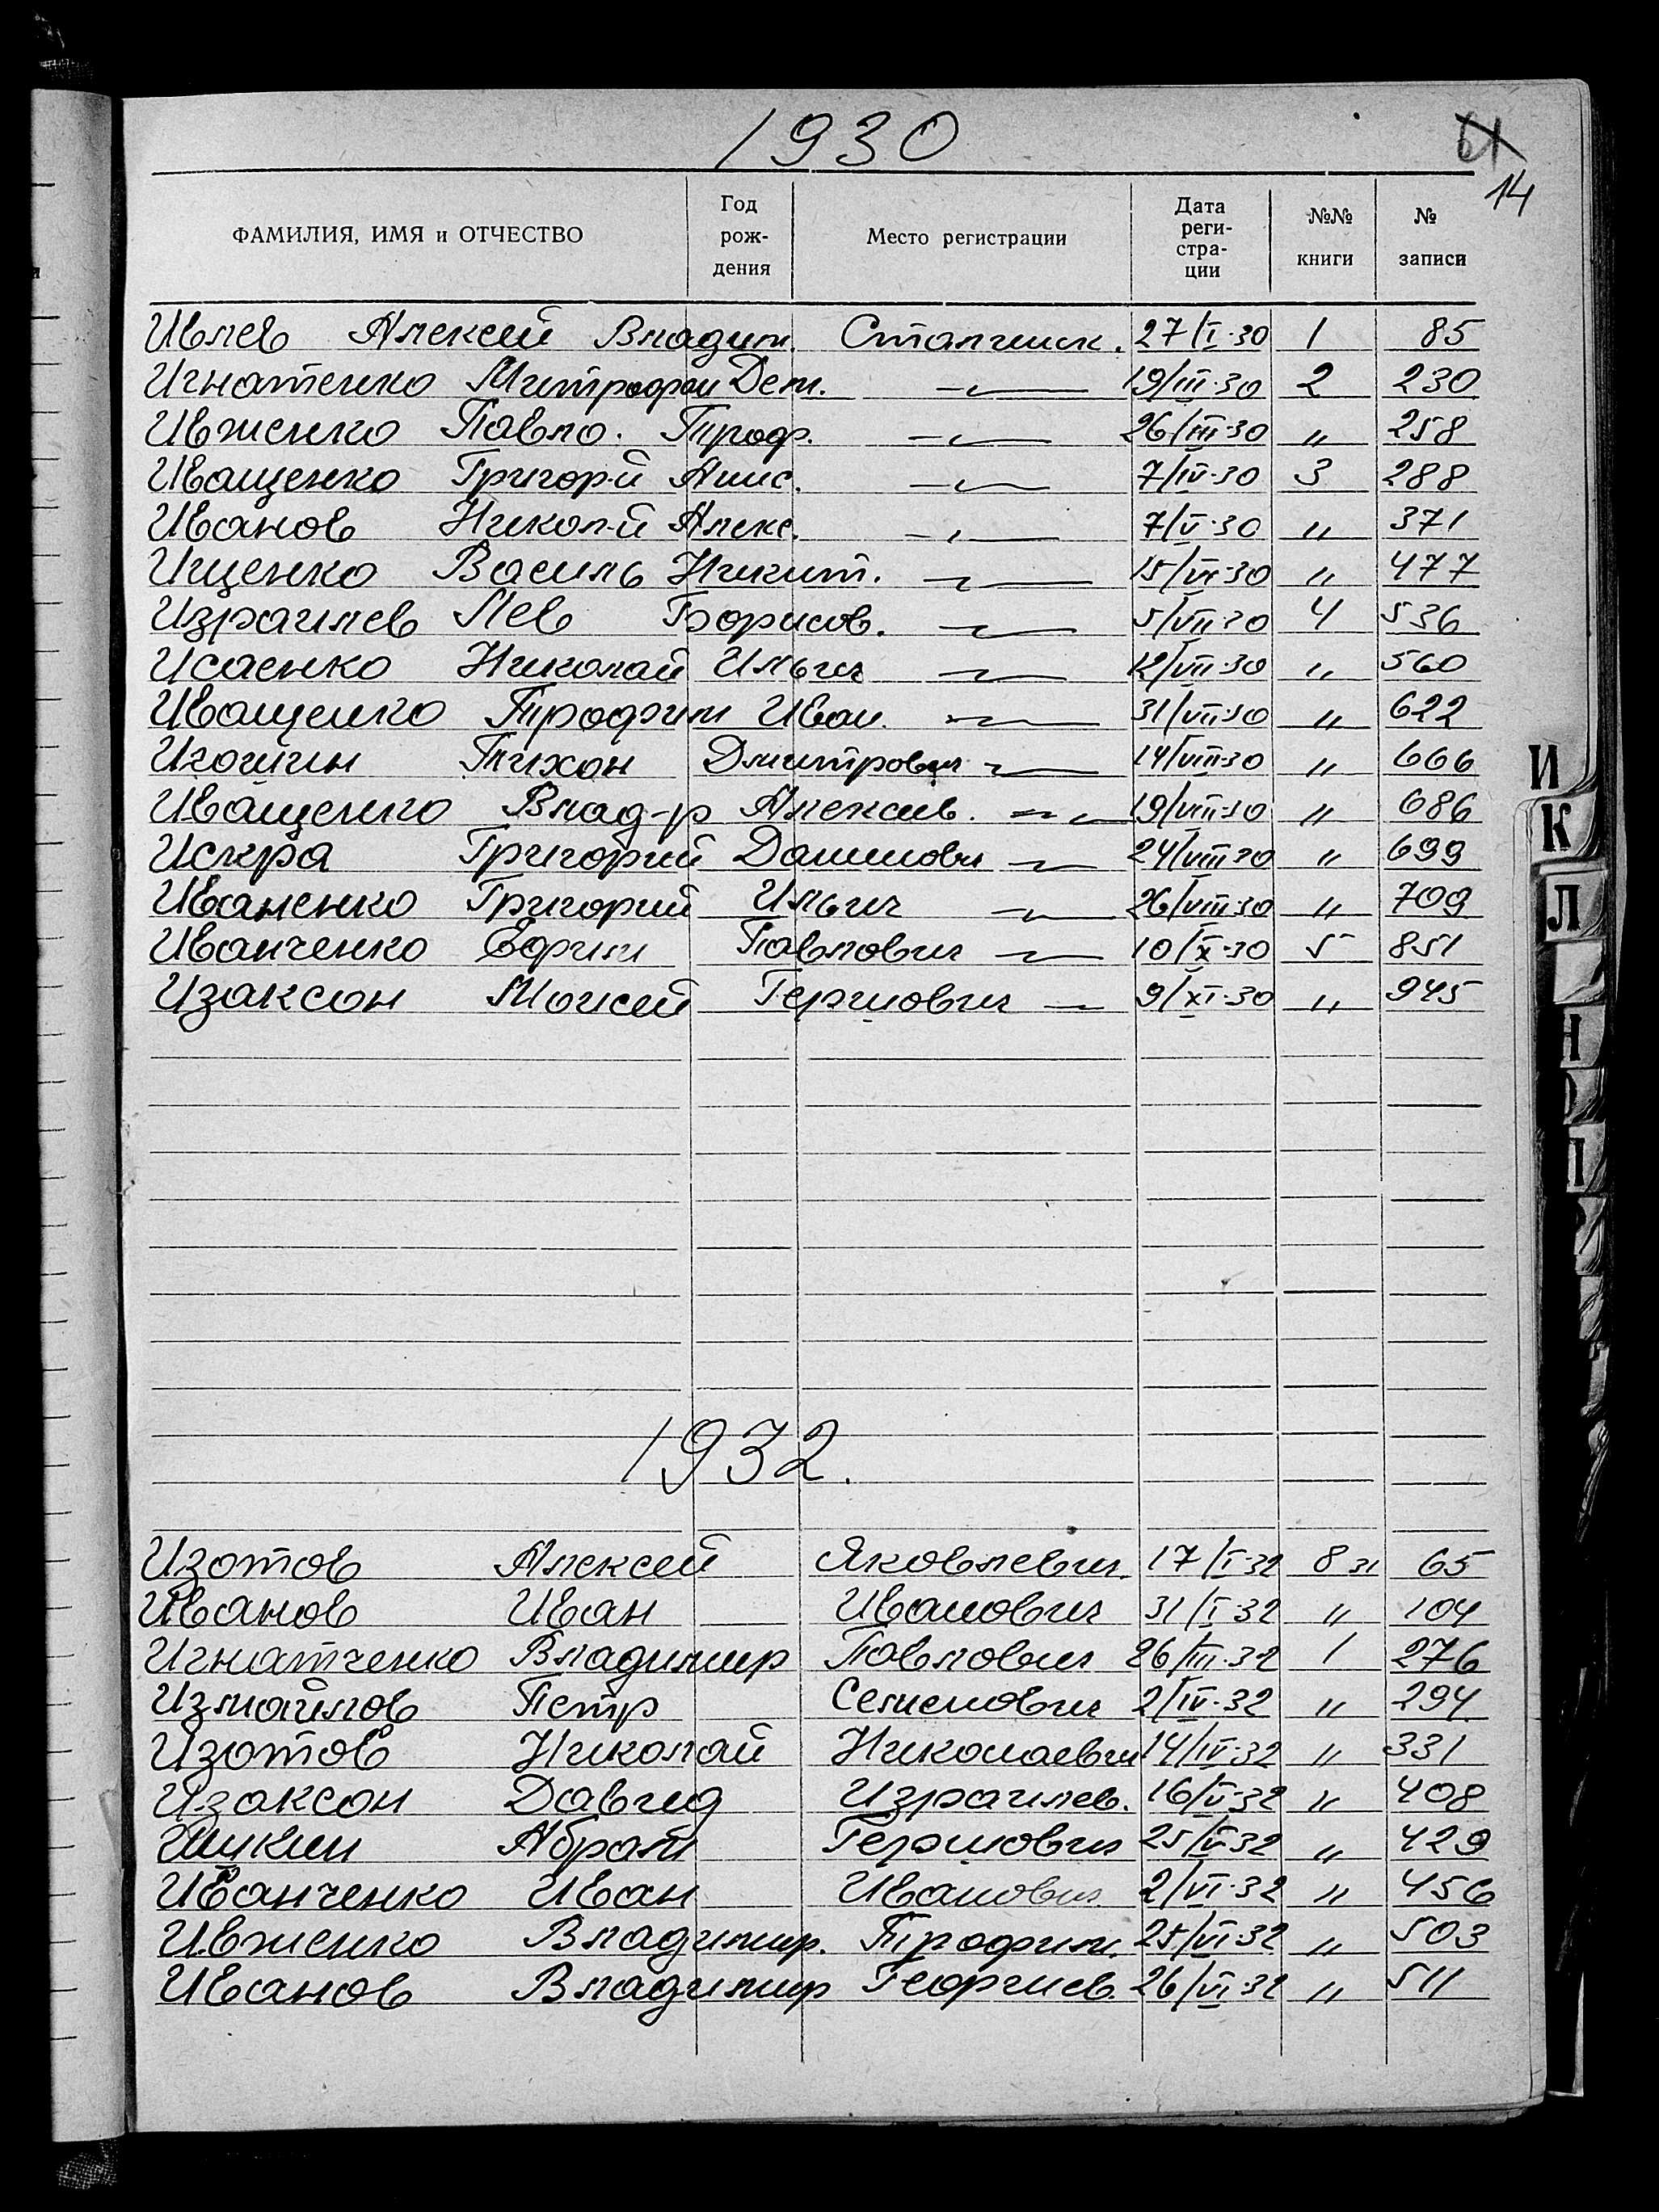 1930
61
14
ФАМИЛИЯ, ИМЯ и ОТЧЕСТВО Год рож- дения Место регистрации Дата реги- стра- ции №№ книги № записи
Ивлев Алексей Владим. Сталинск. 27/I-30 1 85
Игнатенко Митрофан Дем. 19/III-30 2 230
Ивженко Павло. Троф. 26/III-30 " 258
Иващенко Григор-й Анис. 7/IV-30 3 288
Иванов Никол-й Алекс. 7/V-30 " 371
Ищенко Василь Никит. 15/VI-30 " 477
Израилев Лев Борисов. 5/VII-30 4 536
Исаенко Николай Ильич 12/VII-30 " 560
Иващенко Трофим Иван. 31/VII-30 " 622
Игошин Тихон Дмитрович 14/VIII-30 " 666
Иващенко Влад-р Алексив. 19/VIII-30 " 686
Искра Григорий Данилович 24/VIII-30 " 699
Иваненко Григорий Ильич 26/VIII-30 " 709
Иванченко Ефрим Павлович 10/X-30 5 851
Изаксон Моисей Гершович 9/XI-30 " 945
1932.
Изотов Алексей Яковлевич. 17/I-32 8 31 65
Иванов Иван Иванович 31/I-32 " 104
Игнатченко Владимир Павлович 26/III-32 1 276
Измайлов Петр Семенович 2/IV-32 " 294
Изотов Николай Николаевич 14/IV-32 " 331
Изаксон Давид Израилев. 16/V-32 " 408
Ишкин Абрам Гершович 25/V-32 " 429
Иванченко Иван Иванович. 2/VI-32 " 456
Ивженко Владимир. Трофим. 25/VI-32 " 503
Иванов Владимир Георгиев. 26/VI-32 " 511
И
К
Л
Н
О
П
Р